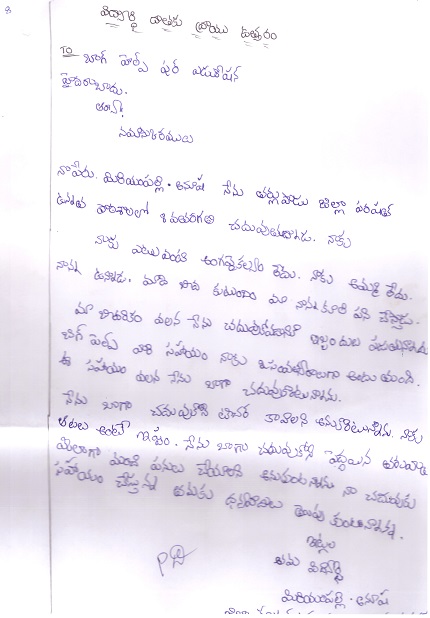 విద్యార్థి దాతకు వ్రాయు ఉత్తరం
TO బిగ్ హెల్ప్ ఫర్ ఎడుకేషన్
హైదరాబాదు.
అంకుల్!
నమస్కారములు
నా పేరు. మిరియంపల్లి. అనూష నేను తర్లుపాడు జిల్లా పరిషత్
ఉన్నత పాఠశాలలో 8 వతరగతి చదువుతున్నాను. నాకు
నాకు ఎటువంటి అంగవైకల్యం లేదు. నాకు అమ్మ లేదు.
నాన్న ఉన్నాడు. మాది బీద కుటుంబం మా నాన్న కూలి పని చేస్తాడు.
మా బీదరికం వలన నేను చదువుకోవడానికి ఇబ్బందులు పడుతున్నాను
బిగ్ హెల్ప్ వారి సహాయం నాకు ఉపయోగకరంగా ఉంటుంది.
ఈ సహాయం వలన నేను బాగా చదువుకుంటున్నాను.
నేను బాగా చదువుకొని టీచర్ కావాలని అనుకుంటున్నాను. నాకు
అంటే ఇష్టం. నేను బాగు చదువుకొని పెద్దయిన తరువాత
మీలాగా మంచి పనులు చేయాలని అనుకుంటున్నాను నా చదువుకు
సహాయం చేస్తున్న తమకు ధన్యవాదాలు తెలుపు కుంటున్నాను.
ఇట్లు
తమ విద్యార్థి
మిరియంపల్లి. అనూష